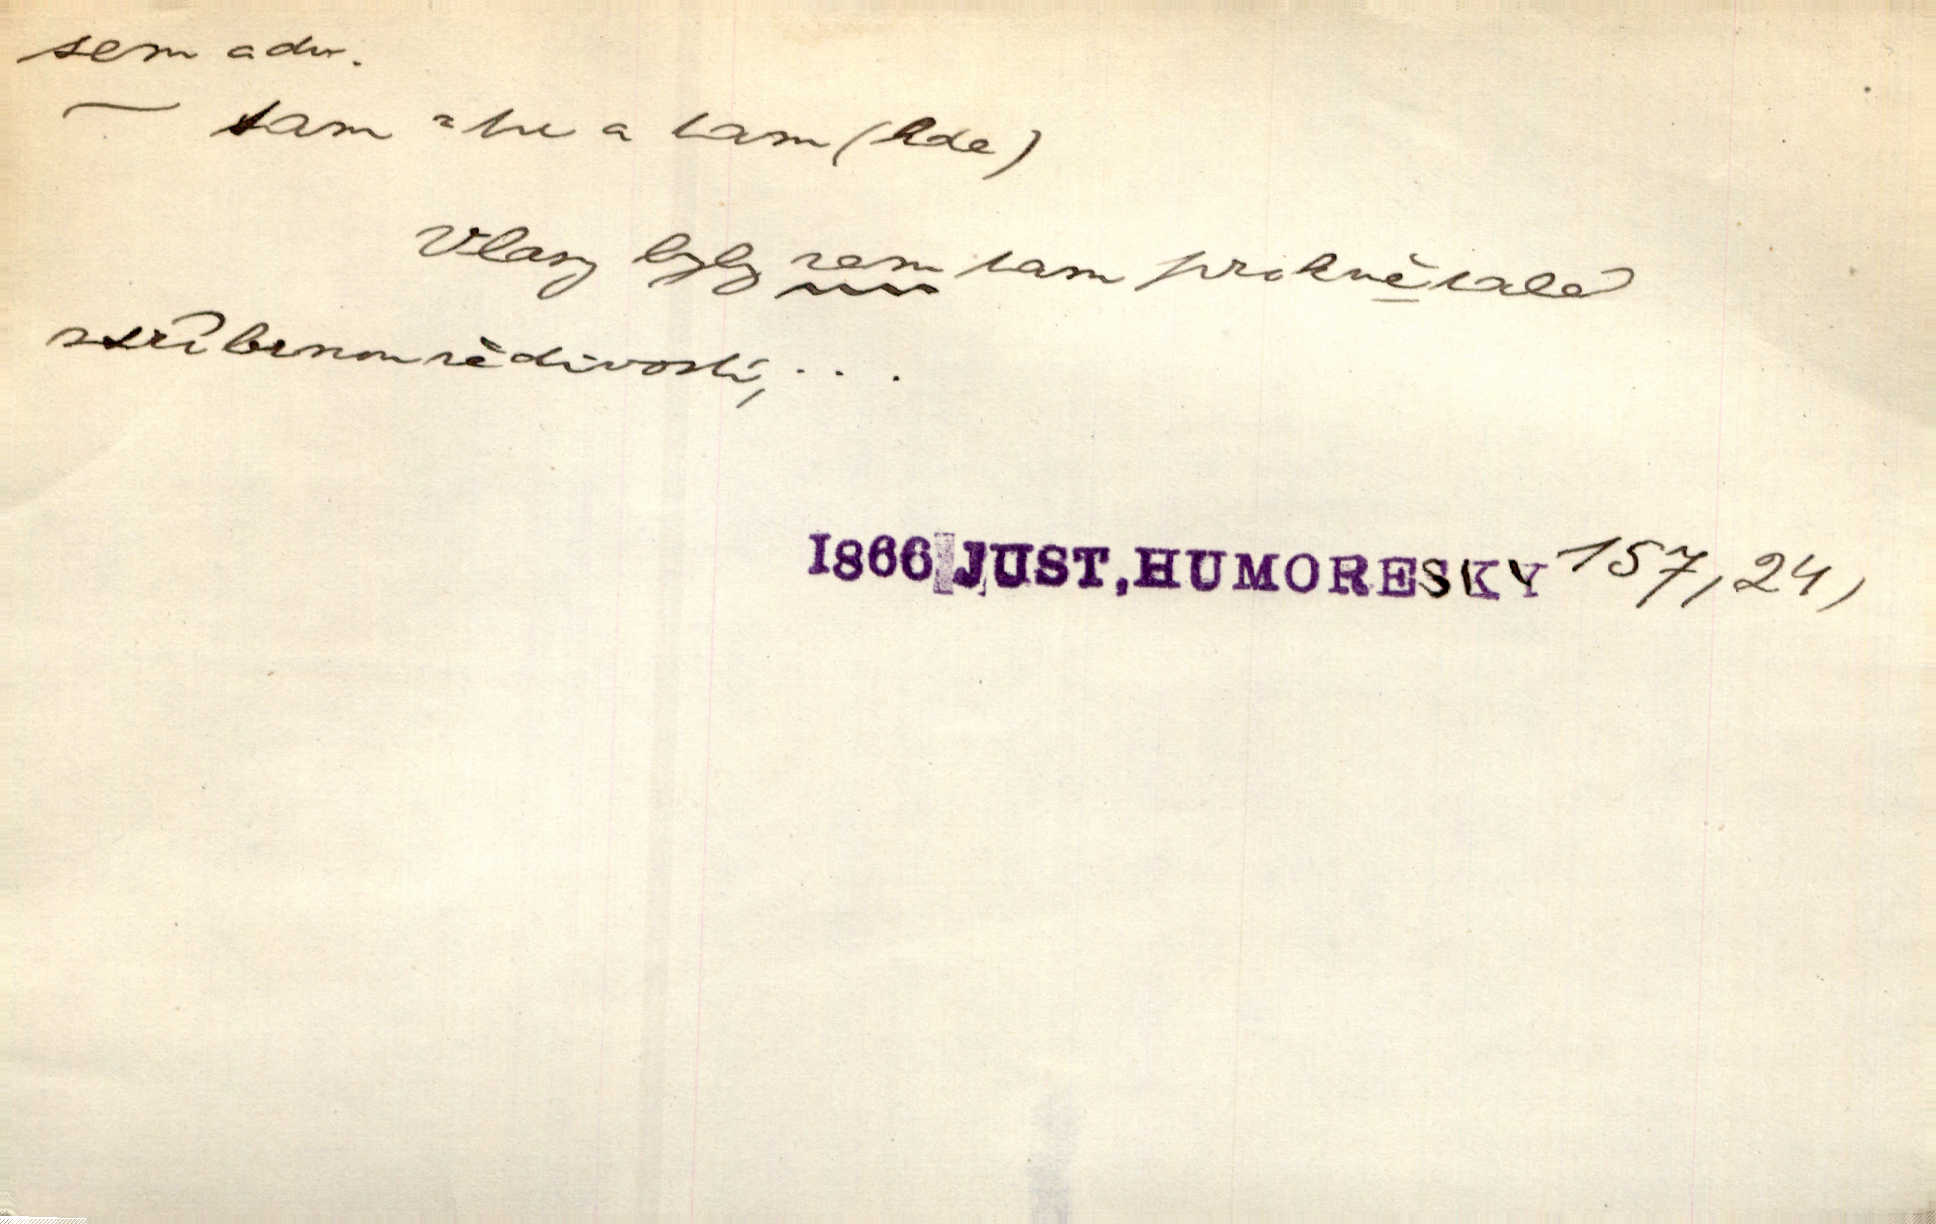 sem adv.
— tam = tu a tam (kde)
Vlasy byly sem tam prokvětalé
stříbrnou šedivostí, . . .
1866 JUST, HUMORESKY 157, 24,